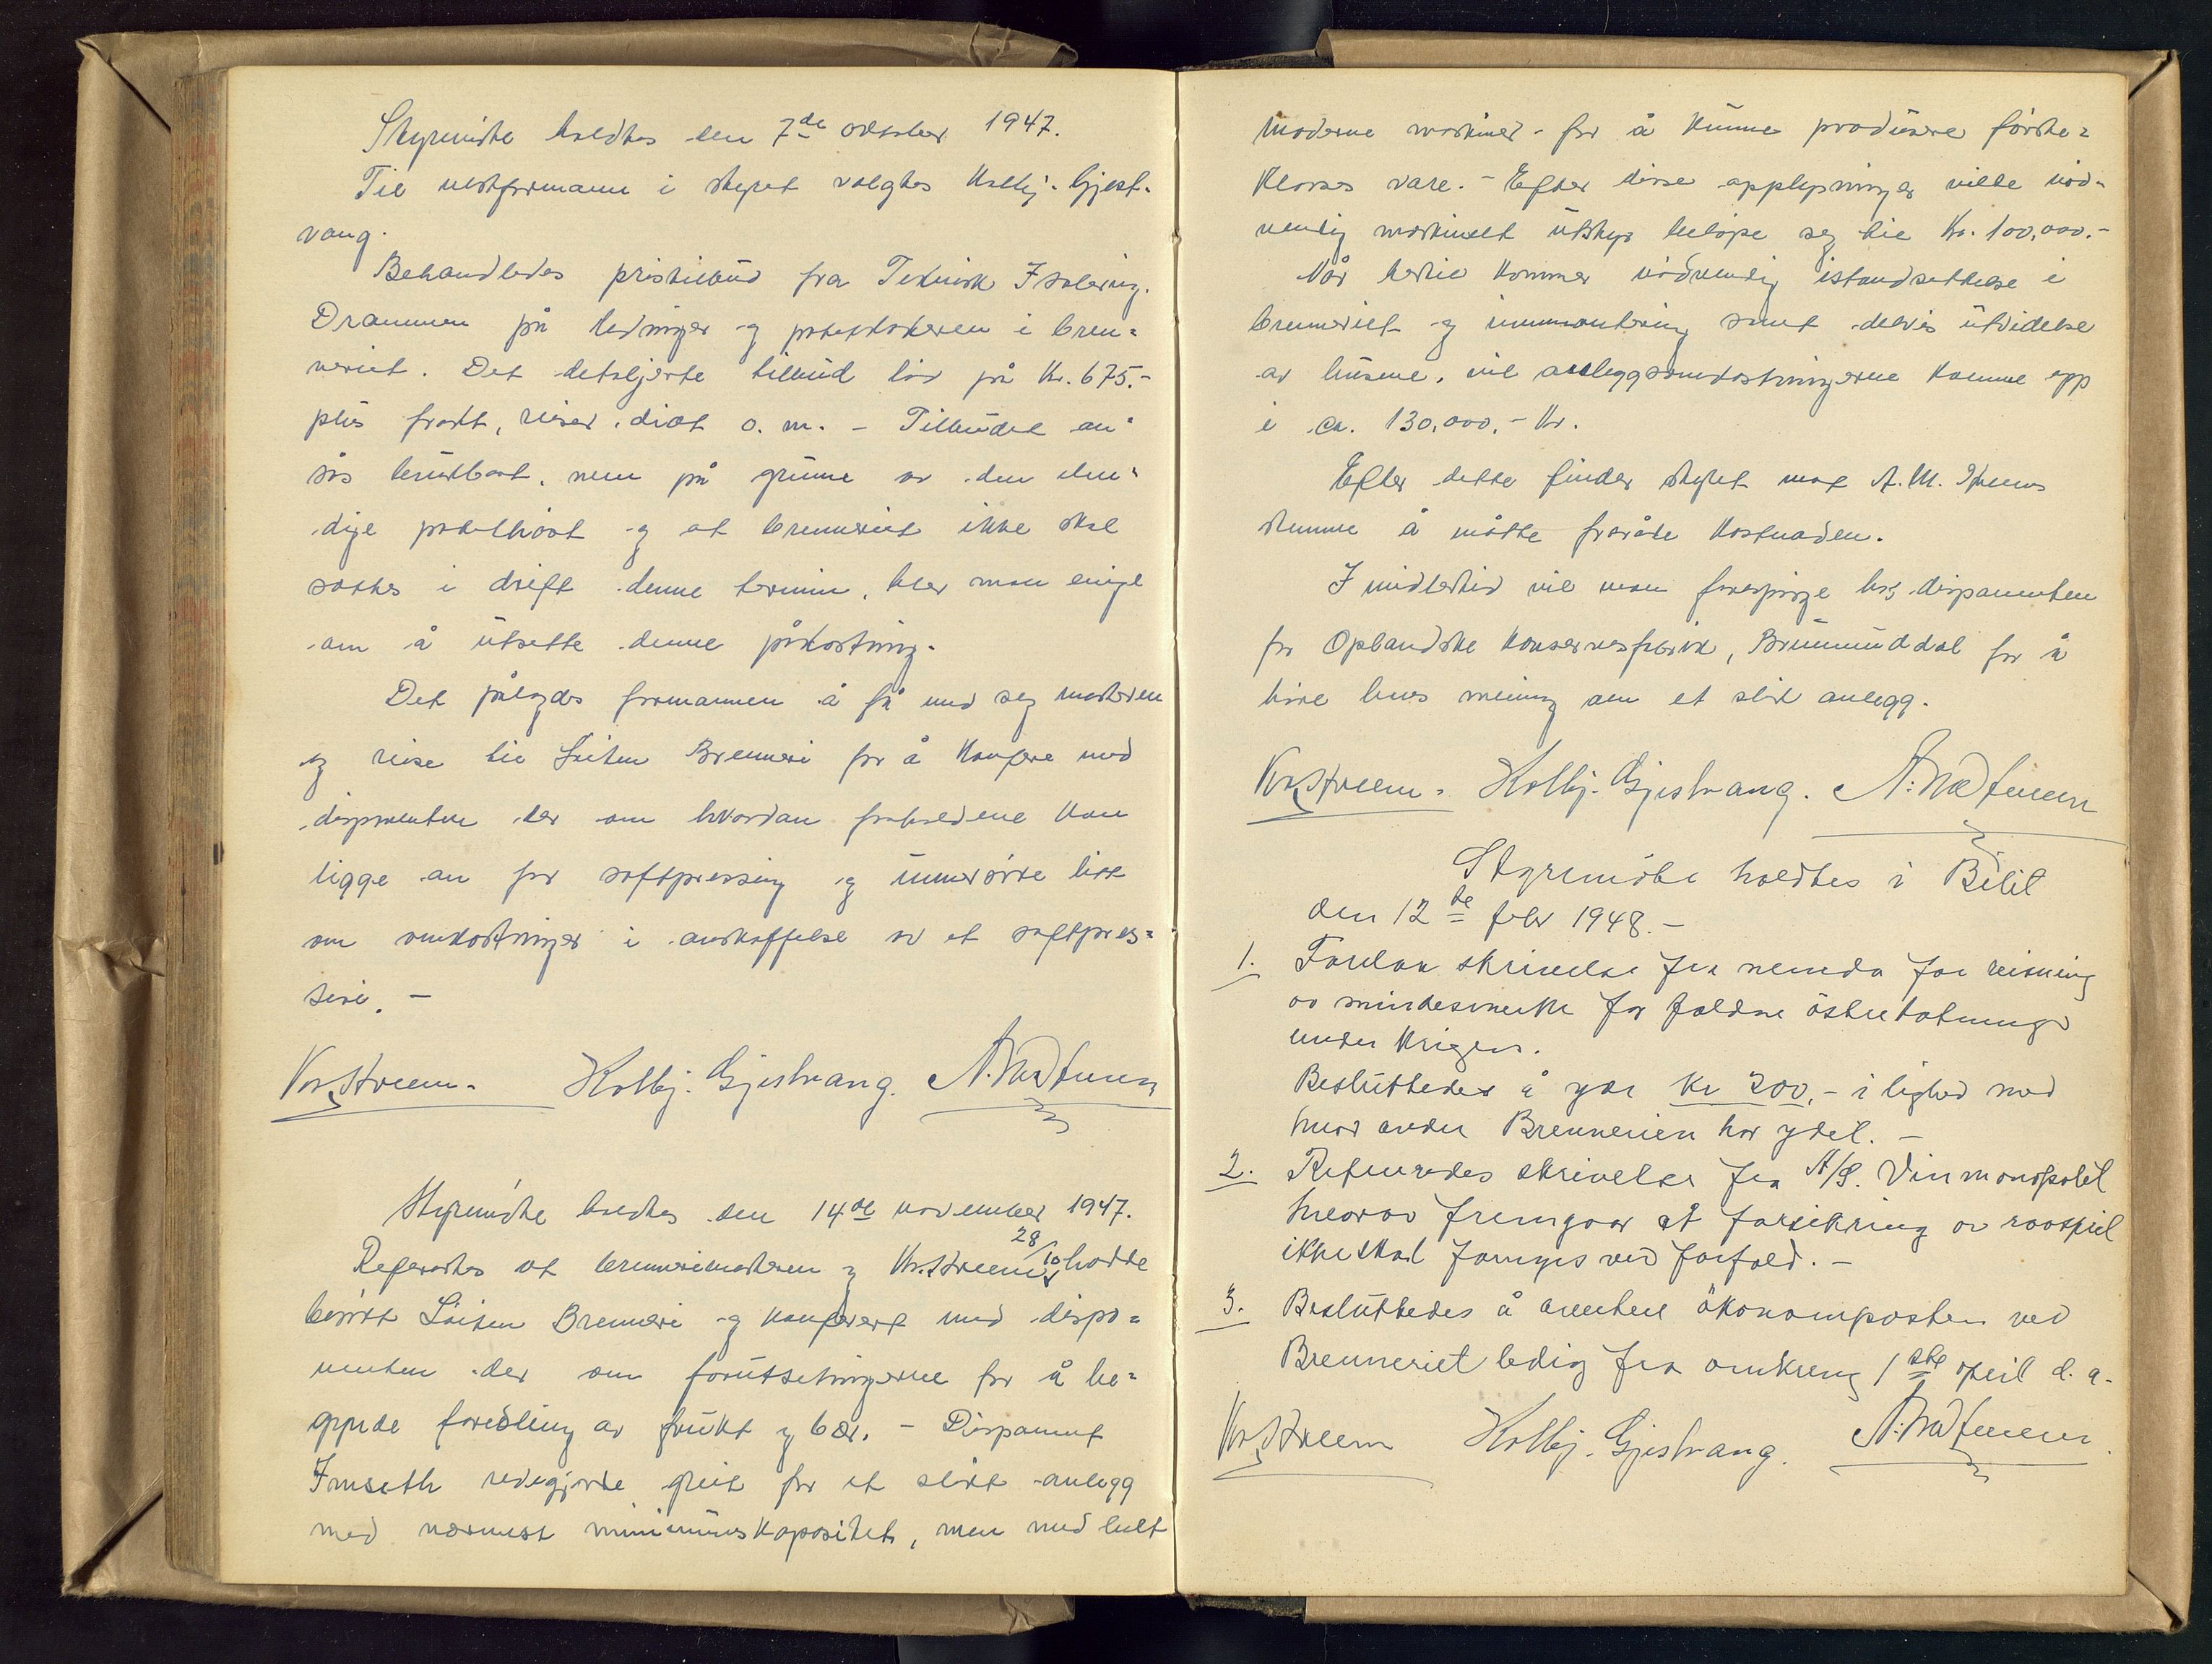 Styremöte holdtes den 7de oktober 1947.
Til nestformann i styret valgtes Kolbj. Gjest-
vang.
Behandledes pristilbud fra Teknisk Isolering.
Drammen på ledninger og potetkokeren i bren-
neriet. Det detaljerte tilbud löd på Kr. 675.-
plus frakt, reiser, diæt o. m. - Tilbudet an-
sås brukbart, men på grunn av den elen-
dige potethöst og at brenneriet ikke skal
settes i drift denne termin, blev man enige
om å utsette denne påkostning.
Det pålagdes formannen å få med seg mesteren
og reise til Löiten Brenneri for å konfere med
disponenten der om hvordan forholdene kan
ligge an for saftpressing og undersöke litt
om omkostninger i anskaffelse av et saftpres-
seri. -
Kr. Streem. Kolbj. Gjestvang. A. Madsveen
Styremöte holdtes den 14de november 1947.
Refertes at brennerimesteren og Kr. Streem 28/10 hadde
besökt Löiten Brenneri og konferert med dispo-
nenten der om forutsetningerne for å be-
gynde foredling av frukt og bær. - Disponent
Imseth redegjorde greit for et slikt anlegg
med nærmest minimumskapasitet, men med helt
moderne maskiner - for å kunne produsere förste-
klasses vare. - Efter disse opplysninger ville nöd-
vendig maskinelt utstyr belöpe seg til Kr. 100,000.-
Når hertil kommer nödvendig istandsettelse i
brenneriet og innmontering samt delvis utvidelse
av husene, vil anleggsomkostningerne komme opp
i ca. 130.000,- Kr.
Efter dette finder styret mot A. M. 
stemme å måtte fraråde kostnaden.
Imidlertid vil man forespörge hos disponenten
for Oplandske Konservesfabrik, Brumunddal for å
höre hans mening om et slikt anlegg.
Kr. Streem. Kolbj. Gjestvang. A. Madsveen
Styremöte holdtes i Bilit
den 12te febr 1948.-
1. Forelaa skrivelse fra nemda for reisning
av mindesmerke for faldne östretotninger
under krigen.
Besluttedes å yde Kr 200,- i lighed med
hvad andre Brennerier har ydet. -
2. Refereredes skrivelse fra A/S. Vinmonopolet
hvorav fremgaar at forsikring av raasprit
ikke skal fornyes ved forfald. -
3. Besluttedes å avertere ökonomposten ved
Brenneriet ledig fra omkring 1ste april d. a.
Kr. Streem Kolbj. Gjestvang. A. Madsveen.